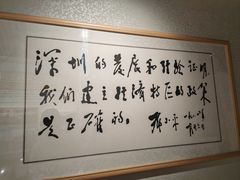 深圳的发展和经验证明
我们建立经济特区的政策
是正确的。 邓小平 一九八四年